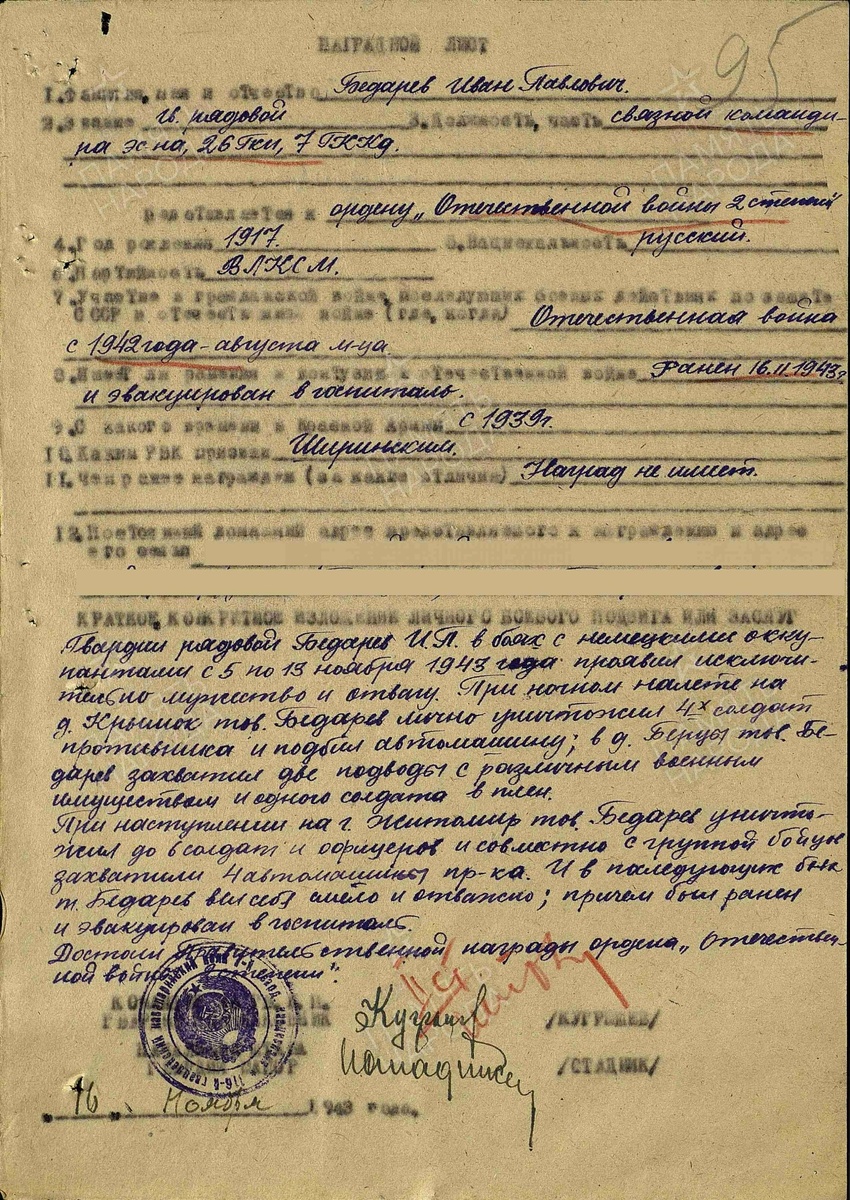 95
НАГРАДНОЙ ЛИСТ
1. Фамилия, имя и отчество Бедарев Иван Павлович.
2. Звание гв. рядовой 3. Должность, часть связной команди-
ра эс-на, 26 Гкп, 7 ГККд.
представляется к ордену „Отечественной войны 2 степени"
4. Год рождения 1917. 5. Национальность русский.
6. Партийность ВЛКСМ.
7. Участие в гражданской войне, последующих боевых действиях по защите
СССР и отечественной войне (где, когда) Отечественная война
с 1942 года - августа м-ца
8. Имеет ли ранения и контузии в отечественной войне Ранен 16.11.1943г
и эвакуирован в госпиталь.
9. С какого времени в Красной Армии с 1939г.
10. Каким РВК призван Ширинским.
11. Чем ранее награжден (за какие отличия) Наград не имеет.
12. Постоянный домашний адрес представляемого к награждению и адрес
его семьи
КРАТКОЕ, КОНКРЕТНОЕ ИЗЛОЖЕНИЕ ЛИЧНОГО БОЕВОГО ПОДВИГА ИЛИ ЗАСЛУГ
Гвардии рядовой Бедарев И.П. в боях с немецкими окку-
пантами с 5 по 13 ноября 1943 года проявил исключи-
тельно мужество и отвагу. При ночном налете на
д. Крымок тов. Бедарев лично уничтожил 4х солдат
противника и подбил автомашину; в д. Берцы тов. Бе-
дарев захватил две подводы с различным военным
имуществом и одного солдата в плен.
При наступлении на г. Житомир тов. Бедарев уничто-
жил до 6 солдат и офицеров и совместно с группой бойцов
захватили 4 автомашины пр-ка. И в последующих боях
т. Бедарев вел себя смело и отважно; причем был ранен
и эвакуирован в госпиталь.
Достоин Правительственной награды ордена „Отечествен-
ной войны 2 степени".
II ст
/КУГРЫШЕВ/
/СТАДНИК/
„16" Ноября 1943 года.